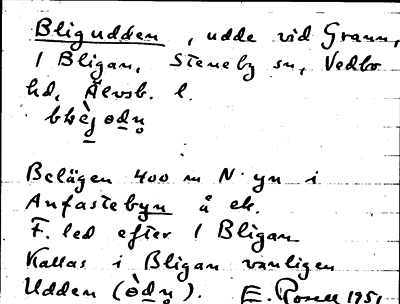 Bligudden, udde vid Grann,
i Bligan, Steneby sn, Vedbo
hd, Älvsb. l.
Belägen 400 m N. yn i
Anfastebyn å ek.
F. led efter i Bligan
Kallas i Bligan vanligen
Udden (òdn̥). E. Rosell 1951